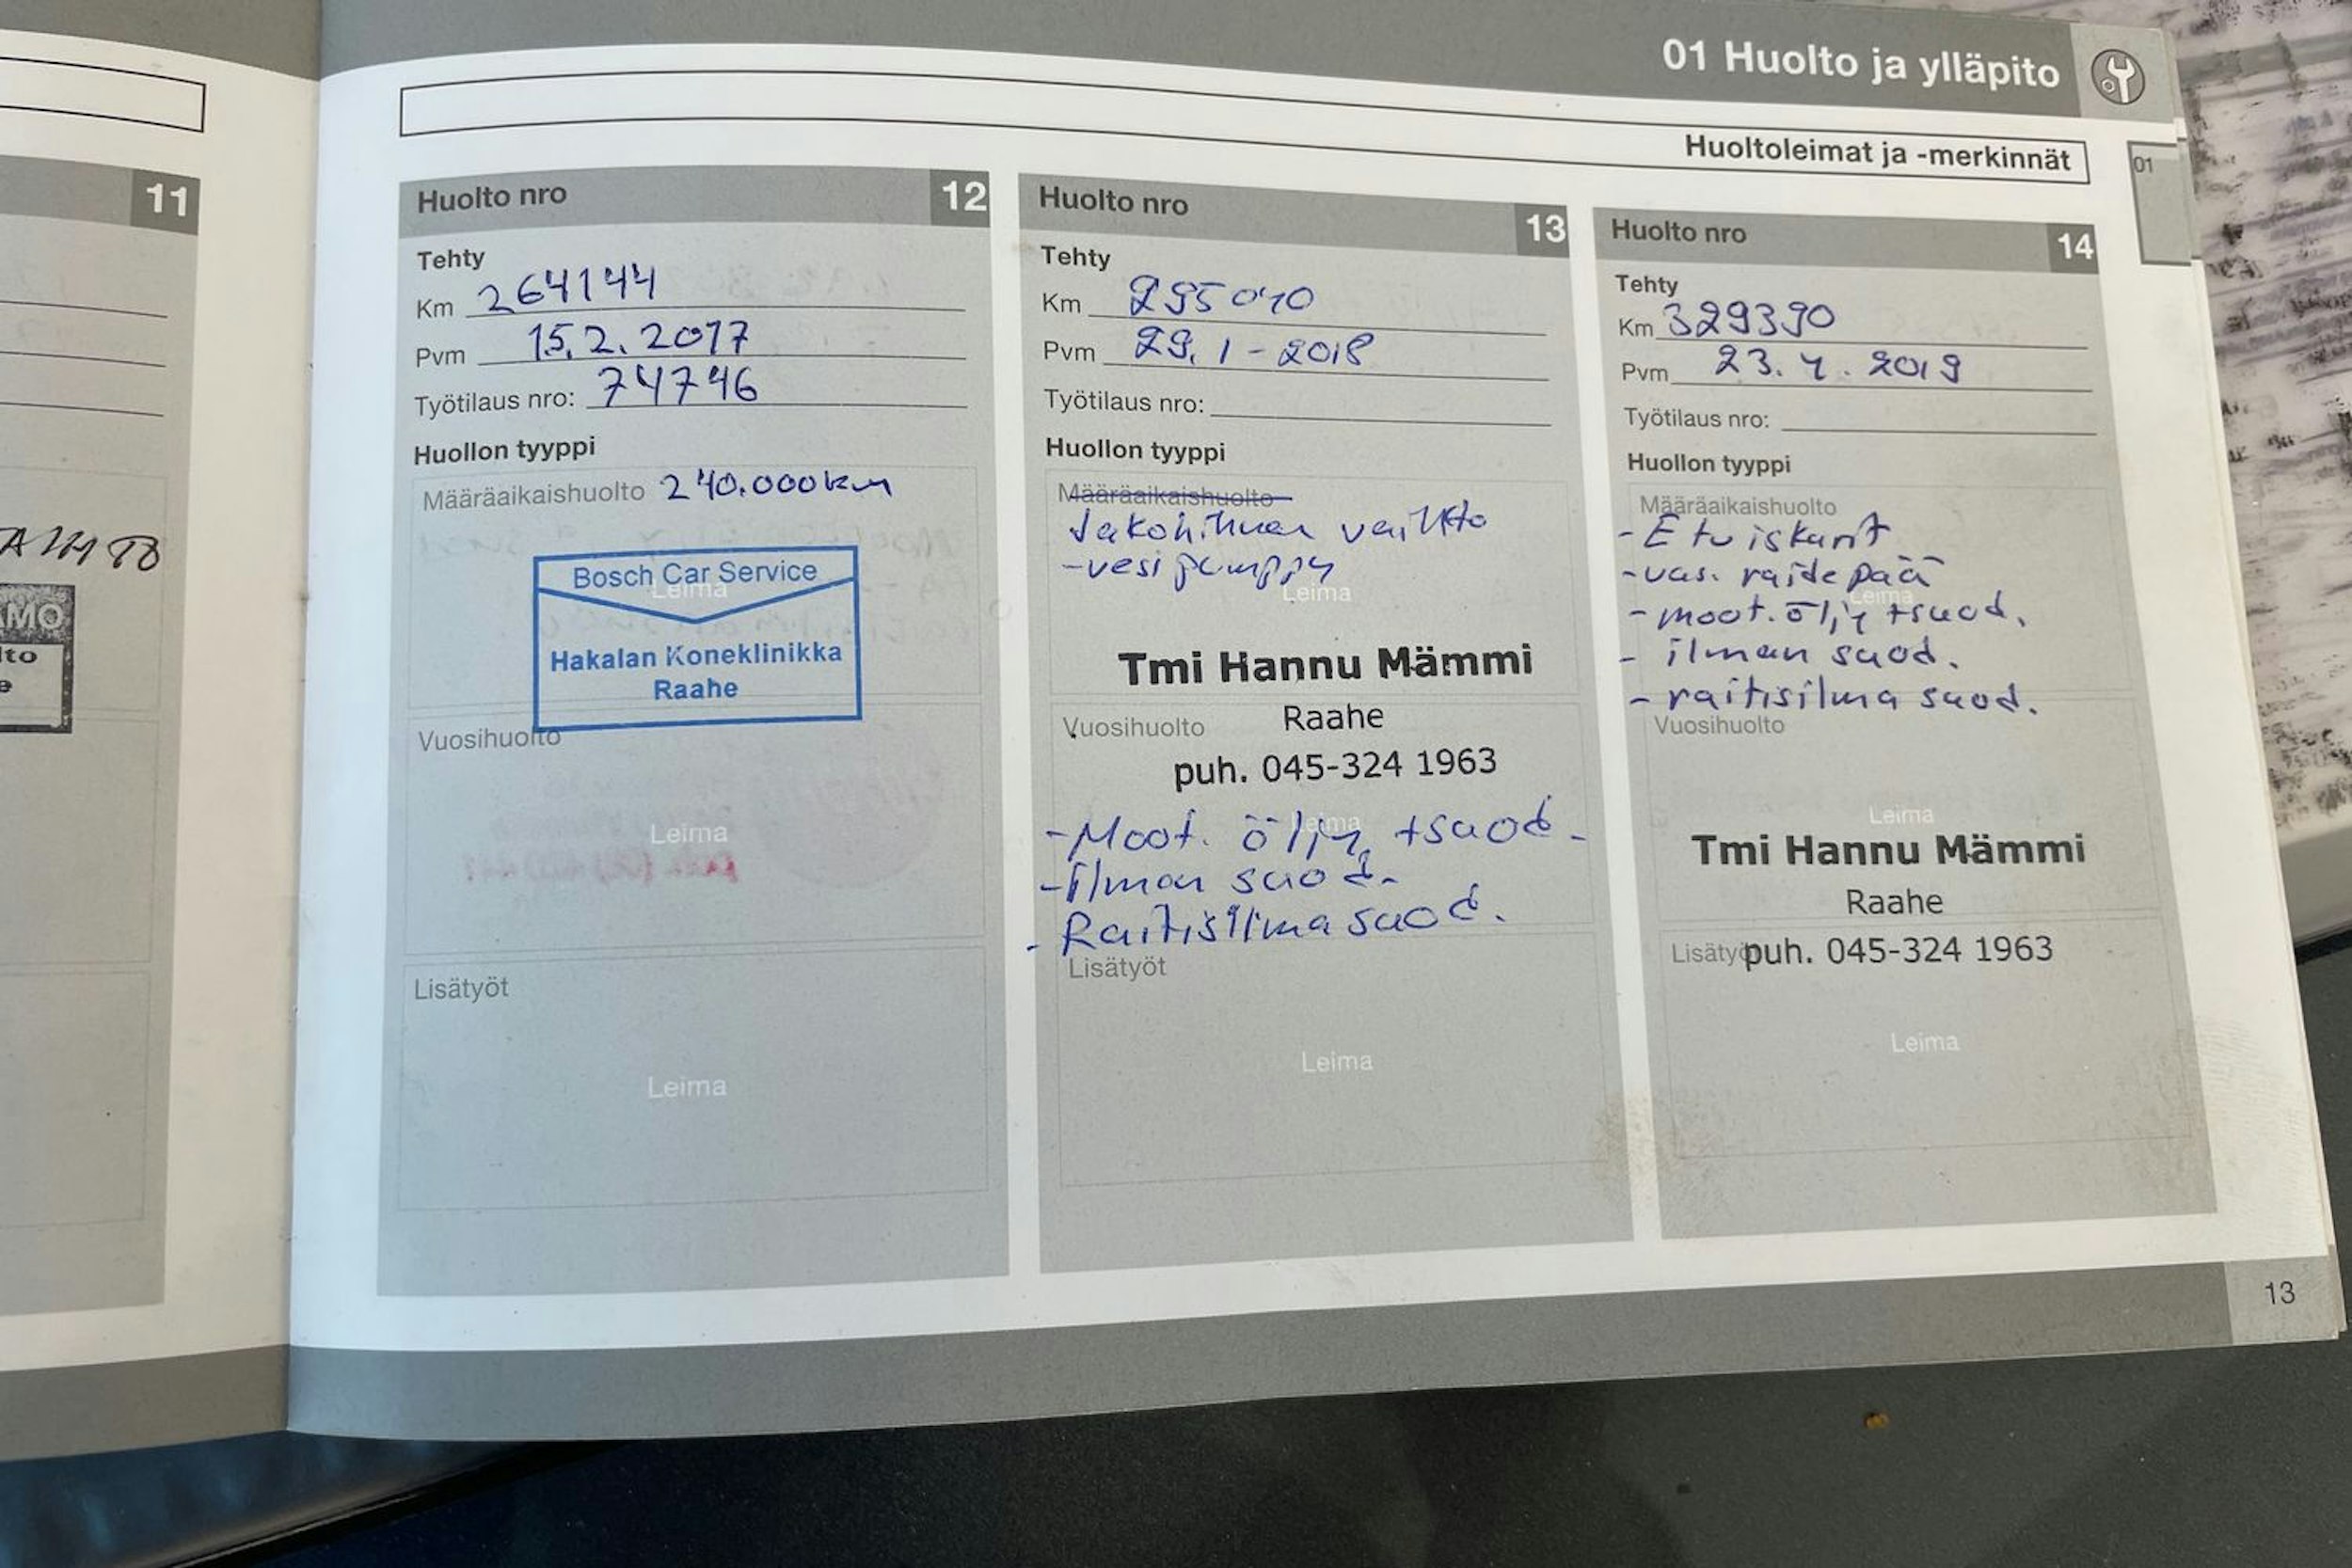 01 Huolto ja ylläpito
Huoltoleimat ja -merkinnät
01
11
AMO
lto
Huolto nro 12
Tehty
Km 264144
Pvm 15.2.2017
Työtilaus nro: 74746
Huollon tyyppi
Määräaikaishuolto 240.000km
Leima
Bosch Car Service
Hakalan Koneklinikka
Raahe
Vuosihuolto
Leima
Lisätyöt
Leima
Huolto nro 13
Tehty
Km 295040
Pvm 29.1-2018
Työtilaus nro:
Huollon tyyppi
Määräaikaishuolto
Jakohihnan vaihto
-vesipumppu
Leima
Tmi Hannu Mämmi
Raahe
Vuosihuolto
puh. 045-324 1963
Leima
-Moot. öljy +suod.
-Ilman suod.
-Raitisilmasuod.
Lisätyöt
Leima
Huolto nro 14
Tehty
Km 329390
Pvm 23.4.2019
Työtilaus nro:
Huollon tyyppi
Määräaikaishuolto
-Etuiskarit
-vas. raidepää
Leima
-moot. öljy +suod.
- ilman suod.
- raitisilma suod.
Vuosihuolto
Leima
Tmi Hannu Mämmi
Raahe
Lisätyö
puh. 045-324 1963
Leima
13